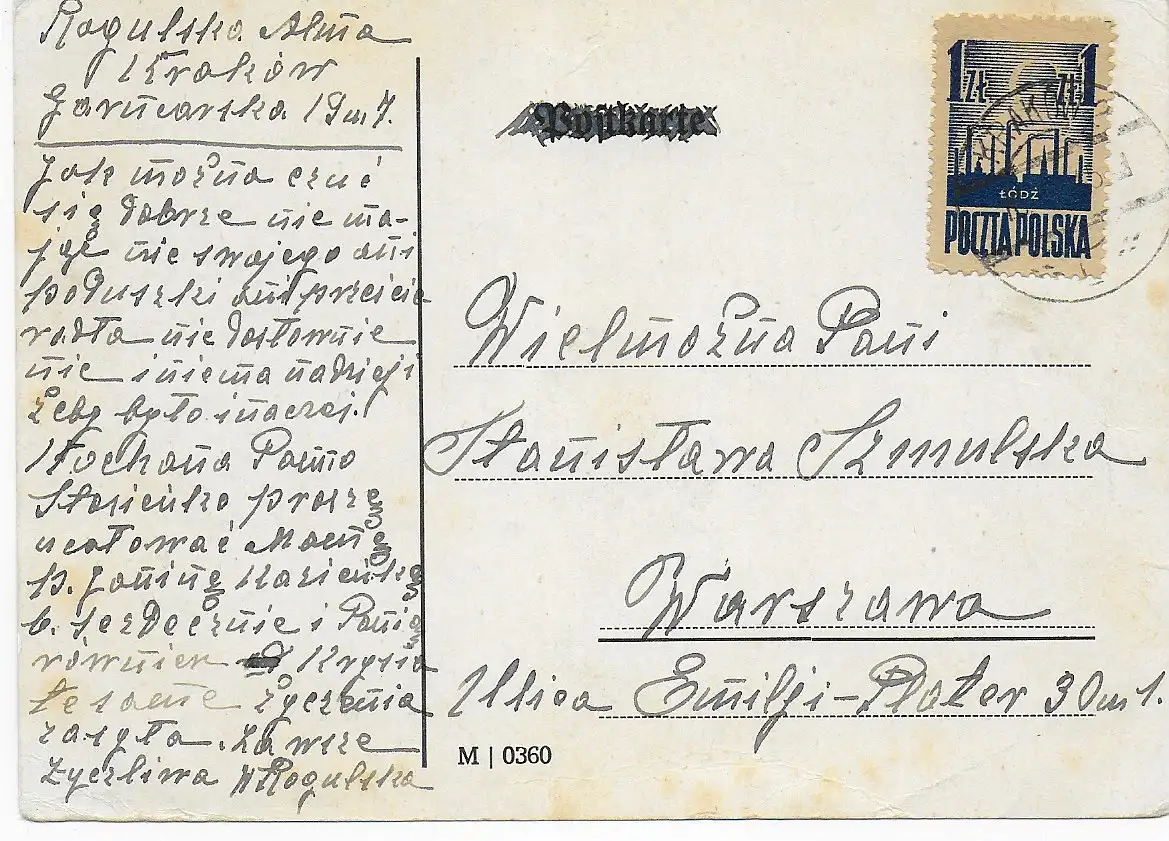 Rogulska Alma
Kraków
Garncarska 19 m 7.
Jak można czuć
się dobrze nie ma-
jąc nic swojego ani
poduszki ani przeście
radła nic dosłownie
nic i niema nadzieji
żeby było inaczej.
Kochana Panno
Stasieńko proszę
ucałować Mamę
p. Janinę Kasieńkę
b. serdecznie i Panią
również Krysia
te same życzenia
zasyła. Zawsze
życzliwa Rogulska
Postkarte
1 ZŁ ZŁ 1
ŁÓDŹ
POCZTA POLSKA
KRAKÓW 2
Wielmożna Pani
Stanisława Szmulska
Warszawa
Ulica Emilji-Plater 30 m 1.
M | 0360